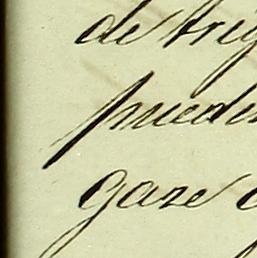 de trig
puedi
gase